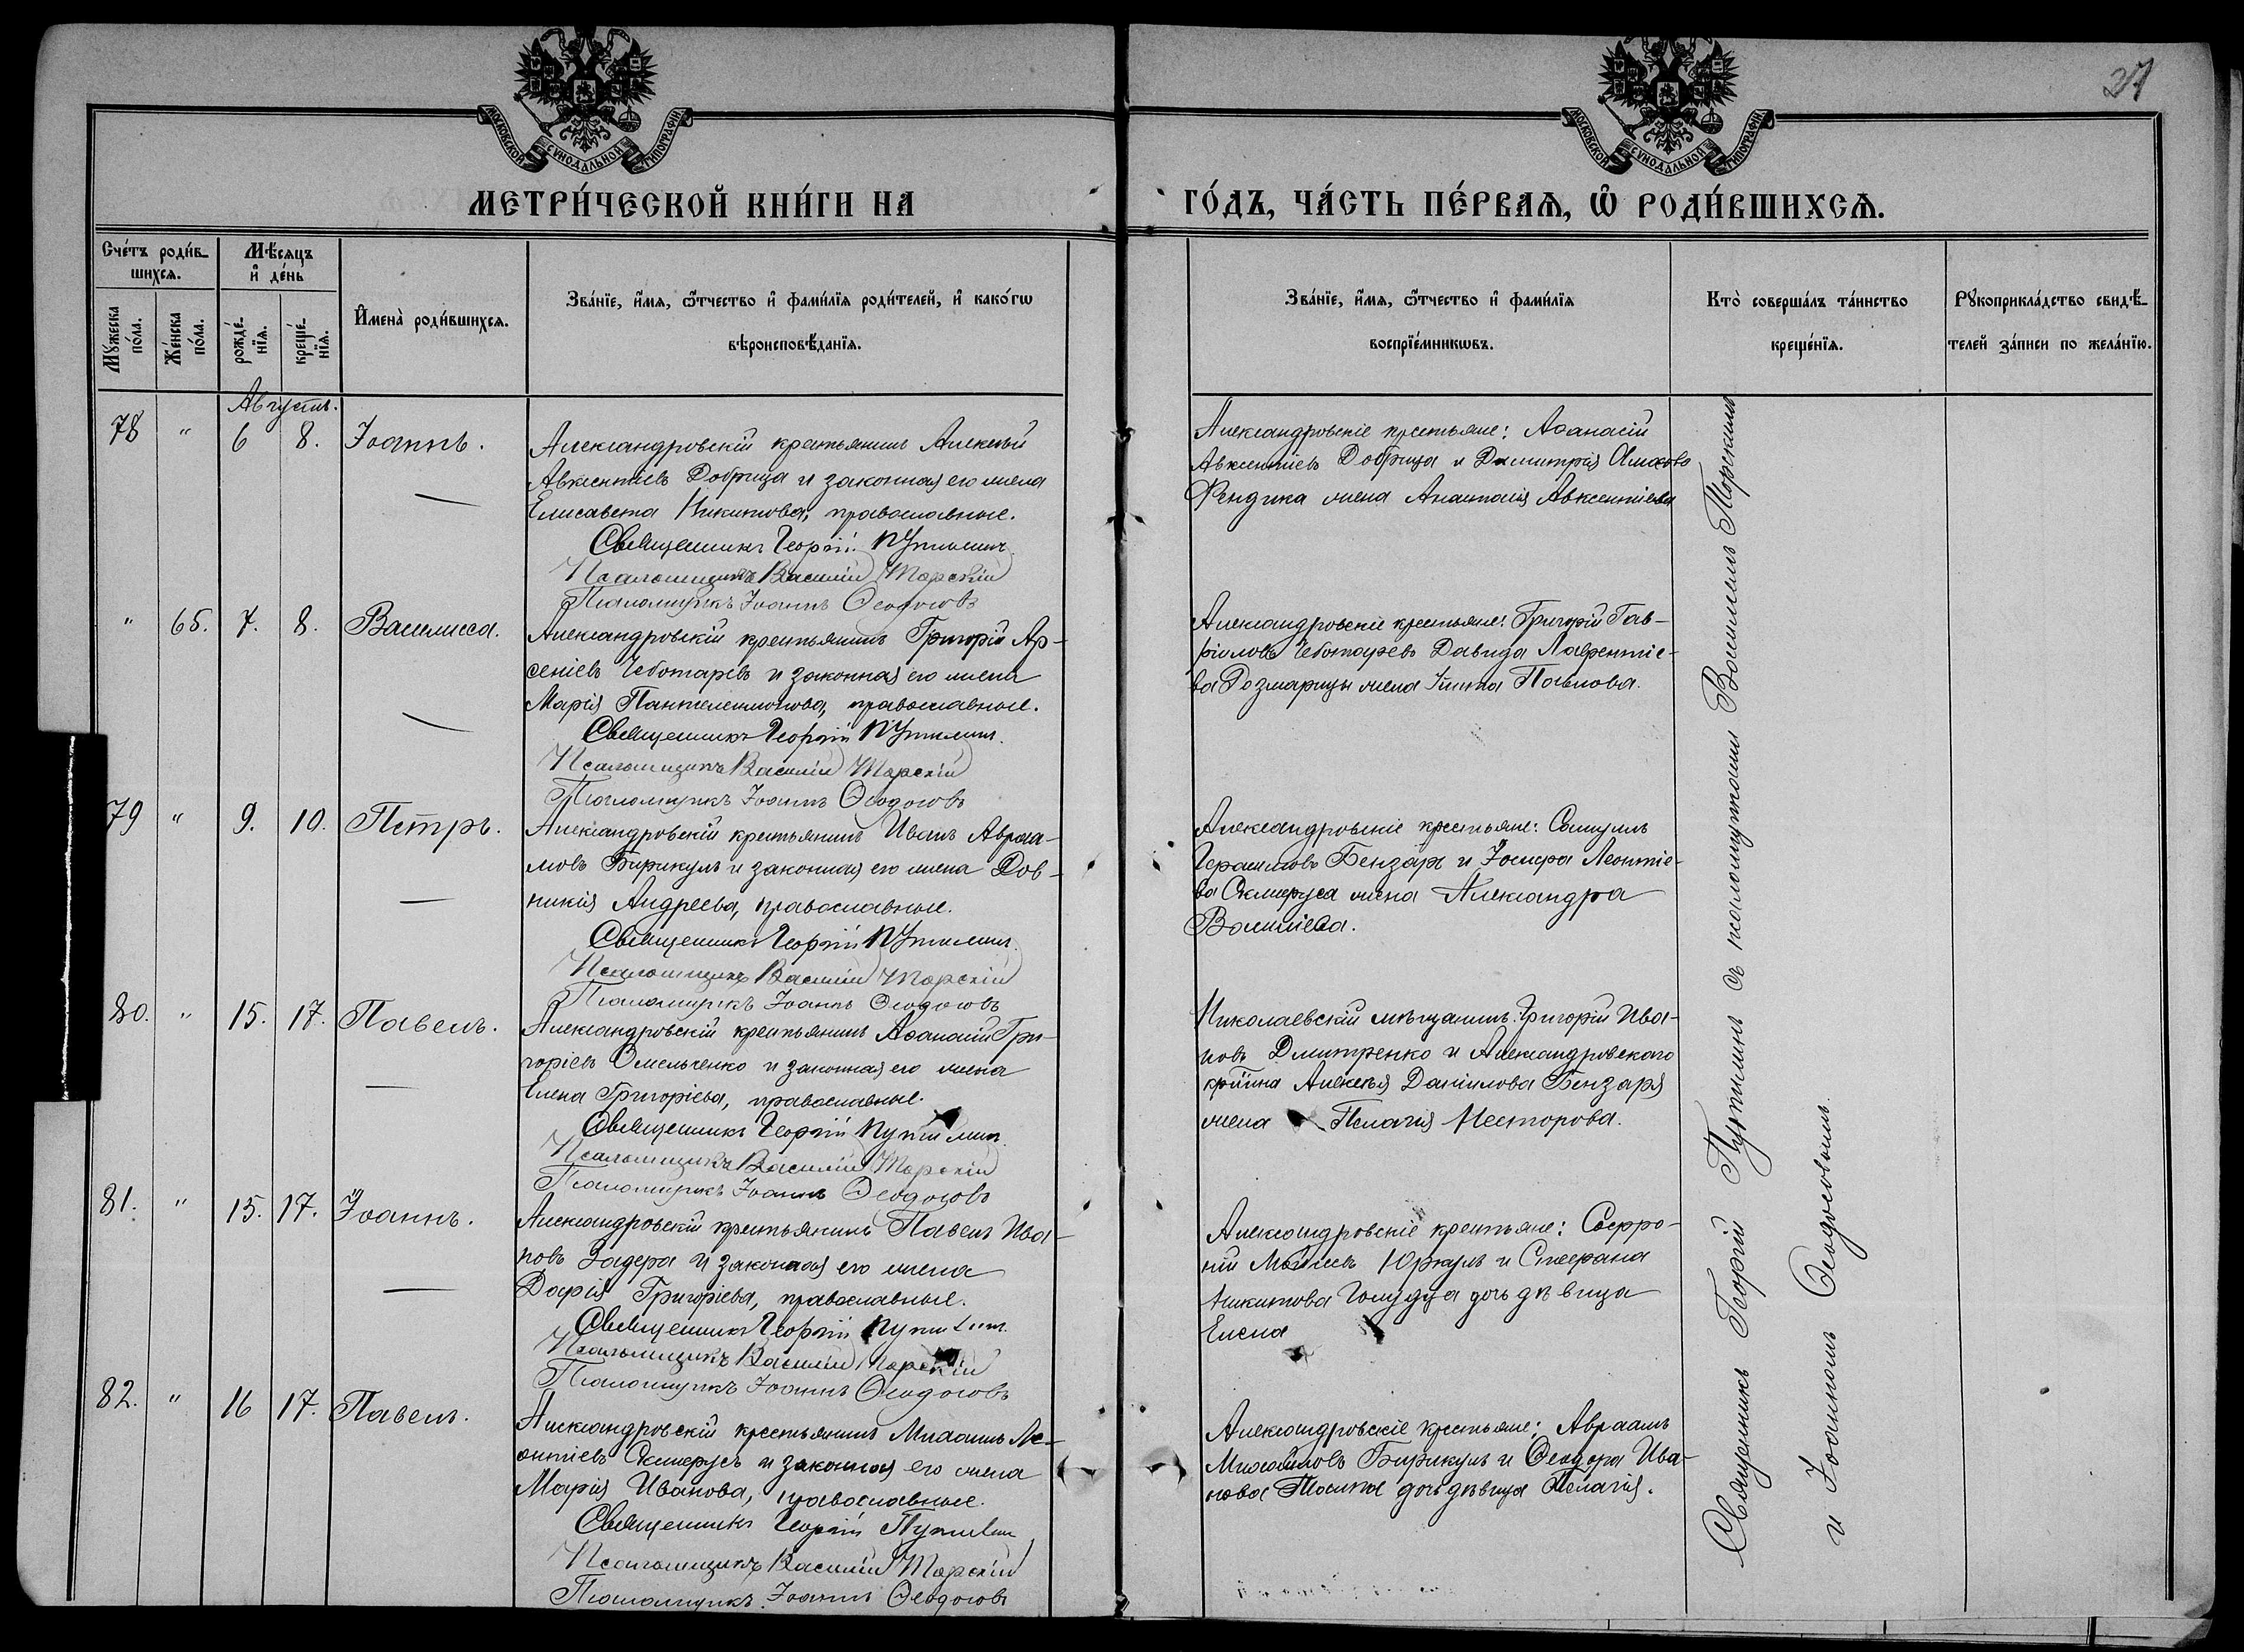 27
МОСКОВСКОЙ СѴНОДАЛЬНОЙ ТИПОГРАФІИ
МОСКОВСКОЙ СѴНОДАЛЬНОЙ ТИПОГРАФІИ
МЕТРИ́ЧЕСКОЙ КНИ́ГИ НА
ГО́ДЪ, ЧА́СТЬ ПЕ́РВАѦ, Ѽ РОДИ́ВШИХСѦ.
Сче́тъ роди́в-
шихсѧ.
Мꙋжеска по́ла.
Же́нска по́ла.
Мѣ́сѧцъ
и҆ де́нь
рожде́-
нїѧ.
креще́-
нїѧ.
И҆мена̀ роди́вшихсѧ.
Зва́нїе, и҆́мѧ, ѻ҆́тчество и҆ фами́лїѧ роди́телей, и҆ како́гѡ
вѣроисповѣ́данїѧ.
Зва́нїе, и҆́мѧ, ѻ҆́тчество и҆ фами́лїѧ
воспрїе́мникѡвъ.
Кто̀ соверша́лъ та́инство
креще́нїѧ.
Рꙋкоприкла́дство свидѣ́-
телей за́писи по жела́нїю.
Августъ.
78 " 6 8. Іоаннъ.
Александровскій крестьянинъ Алексѣй
Авксентіевъ Добрица и законная его жена
Елисавета Никитова, православные.
Священникъ Георгій Путилинъ
Псаломщикъ Василій Торскій
Псаломщикъ Іоаннъ Ѳеодосовъ
Александровскіе крестьяне: Аѳанасій
Авксентіевъ Добрица и Димитрія
Фендика жена Анастасія Авксентіева
" 65. 7. 8. Василисса.
Александровскій крестьянинъ Григорій Ар-
сеніевъ Чеботаревъ и законная его жена
Марія Пантелеимонова, православные.
Священникъ Георгій Путилинъ.
Псаломщикъ Василій Торскій
Псаломщикъ Іоаннъ Ѳеодосовъ
Александровскіе крестьяне: Григорій Гав-
ріиловъ Чеботаревъ Давида Лаврентіе-
ва Розмарицы жена Павлова.
79 " 9. 10. Петръ.
Александровскій крестьянинъ Иванъ Авраа-
мовъ Бирикулъ и законная его жена Дов-
никія Андреева, православные.
Священникъ Георгій Путилинъ
Псаломщикъ Василій Торскій
Псаломщикъ Іоаннъ Ѳеодосовъ
Александровскіе крестьяне: Самуилъ
Герасимовъ Бензарь и Іосифа Леонтіе-
ва Склируса жена Александра
Васильева.
80. " 15. 17. Павелъ.
Александровскій крестьянинъ Аѳанасій Гри-
горіевъ Омельченко и законная его жена
Елена Григоріева, православные.
Священникъ Георгій Путилинъ.
Псаломщикъ Василій Торскій
Псаломщикъ Іоаннъ Ѳеодосовъ
Николаевскій мѣщанинъ Григорій Ива-
новъ Дмитренко и Александровскаго
Алексѣя Даніилова Бензаря
жена Пелагія Несторова.
81. " 15. 17. Іоаннъ.
Александровскій крестьянинъ Павелъ Ива-
новъ Задера и законная его жена
Дарія Григоріева, православные.
Священникъ Георгій Путилинъ.
Псаломщикъ Василій Торскій
Псаломщикъ Іоаннъ Ѳеодосовъ
Александровскіе крестьяне: Софро-
ній Юркулъ и Стефана
Никитова дочь дѣвица
Елена
82. " 16 17. Павелъ.
Александровскій крестьянинъ Михаилъ Ле-
онтіевъ Склирусъ и законная его жена
Марія Иванова, православные.
Священникъ Георгій Путилин
Псаломщикъ Василій Торскій
Псаломщикъ Іоаннъ Ѳеодосовъ
Александровскіе крестьяне: Авраамъ
Михаиловъ Бирикулъ и Ѳеодора Ива-
нова дочь дѣвица Пелагія.
Священникъ Георгій Путилинъ съ псаломщиками Василіемъ Торскимъ
и Іоанномъ Ѳеодосовымъ.